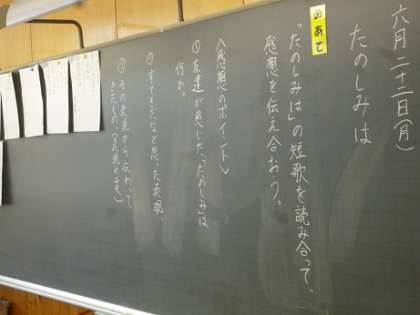 六月二十二日(月)
たのしみは
めあて
「たのしみは」の短歌を読み合って、
感想を伝え合おう。
〈感想のポイント〉
①友達が感じた「たのしみ」は
何か。
②すてきだなと思った表現。
③その表現から伝わって
きたこと。(表現の工夫)